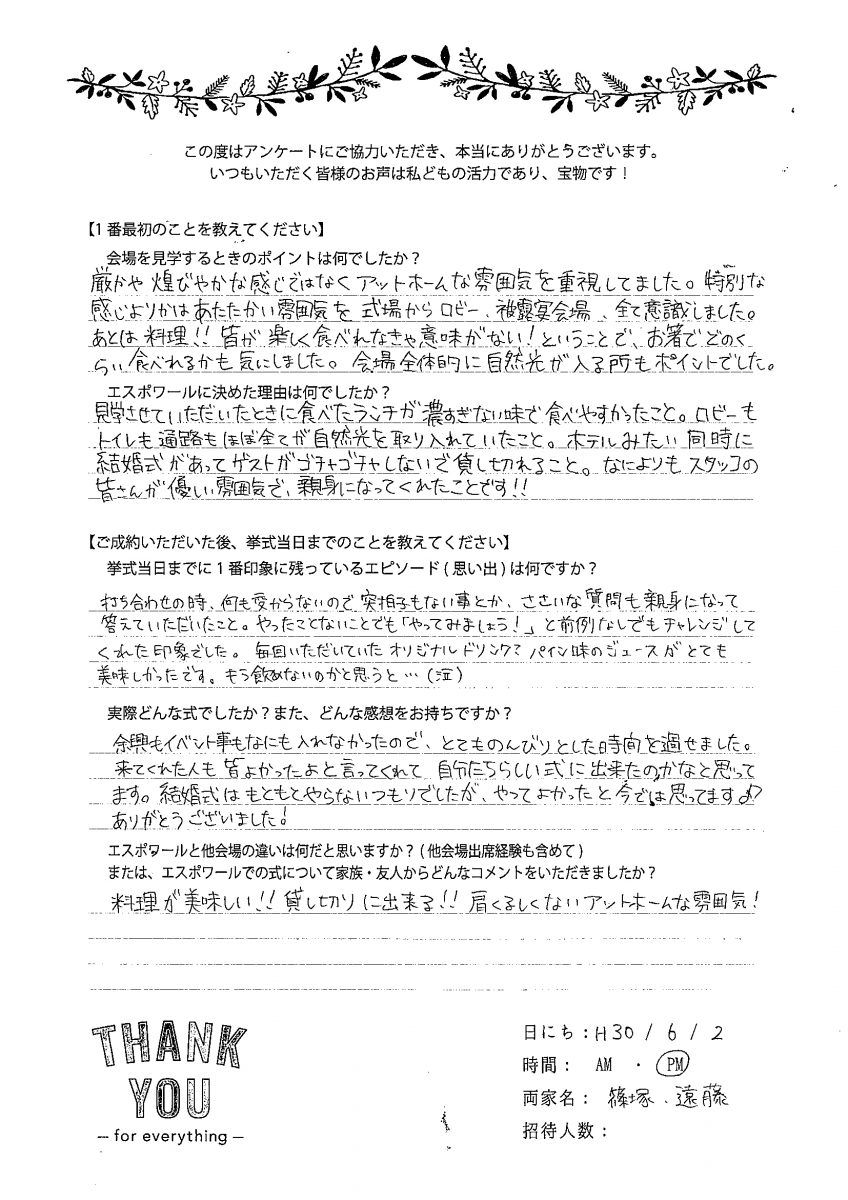 この度はアンケートにご協力いただき、本当にありがとうございます。
いつもいただく皆様のお声は私どもの活力であり、宝物です！
【1番最初のことを教えてください】
会場を見学するときのポイントは何でしたか？
厳かや煌びやかな感じではなくアットホームな雰囲気を重視してました。特別な
感じよりかはあたたかい雰囲気を式場からロビー、披露宴会場、全て意識しました。
あとは料理!!皆が楽しく食べれなきゃ意味がない！ということで、お箸でどのく
らい食べれるかも気にしました。会場全体的に自然光が入る所もポイントでした。
エスポワールに決めた理由は何でしたか？
見学させていただいたときに食べたランチが濃すぎない味で食べやすかったこと。ロビーも
トイレも通路もほぼ全てが自然光を取り入れていたこと。ホテルみたい同時に
結婚式があってゲストがゴチャゴチャしないで貸し切れること。なによりもスタッフの
皆さんが優しい雰囲気で、親身になってくれたことです!!
【ご成約いただいた後、挙式当日までのことを教えてください】
挙式当日までに1番印象に残っているエピソード(思い出)は何ですか？
打ち合わせの時、何も分からないので突拍子もない事とか、ささいな質問も親身になって
答えていただいたこと。やったことないことでも「やってみましょう！」と前例なしでもチャレンジして
くれた印象でした。毎回いただいていたオリジナルドリンク？パイン味のジュースがとても
美味しかったです。もう飲めないのかと思うと…(泣)
実際どんな式でしたか？また、どんな感想をお持ちですか？
余興もイベント事もなにも入れなかったので、とてものんびりとした時間を過せました。
来てくれた人も皆よかったよと言ってくれて自分たちらしい式に出来たのかなと思って
ます。結婚式はもともとやらないつもりでしたが、やってよかったと今では思ってます♪♡
ありがとうございました！
エスポワールと他会場の違いは何だと思いますか？(他会場出席経験も含めて)
または、エスポワールでの式について家族・友人からどんなコメントをいただきましたか？
料理が美味しい!!貸し切りに出来る!!肩くるしくないアットホームな雰囲気！
THANK
YOU
– for everything –
日にち：H30 / 6 / 2
時間： AM ・ PM
両家名： 篠塚、遠藤
招待人数：